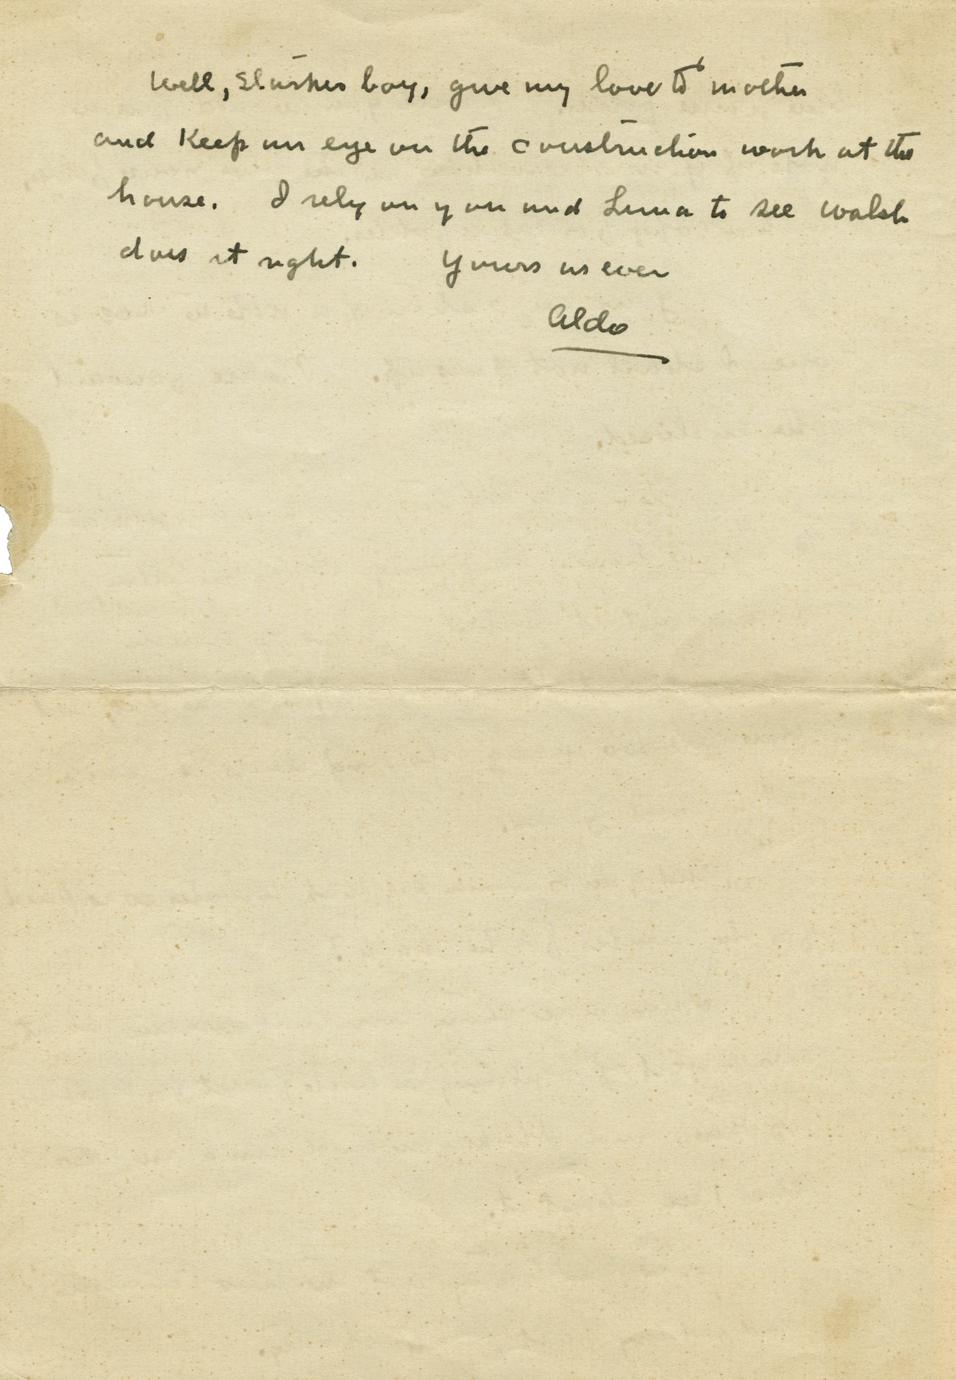 Well, Slusher boy, give my love to mother
and Keep an eye on the construction work at the
house. I rely on you and Luna to see Walsh
does it right. Yours as ever
Aldo